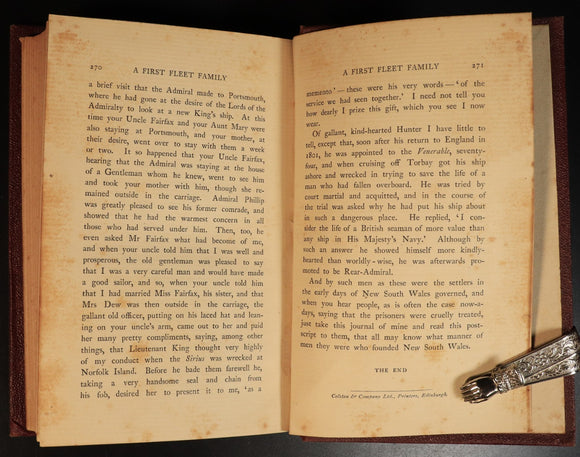 270
A FIRST FLEET FAMILY
a brief visit that the Admiral made to Portsmouth,
where he had gone at the desire of the Lords of the
Admiralty to look at a new King's ship. At this
time your Uncle Fairfax and your Aunt Mary were
also staying at Portsmouth, and your mother, at
their desire, went over to stay with them a week
or two. It so happened that your Uncle Fairfax,
hearing that the Admiral was staying at the house
of a Gentleman whom he knew, went to see him
and took your mother with him, though she re-
mained outside in the carriage. Admiral Phillip
was greatly pleased to see his former comrade, and
showed that he had the warmest concern in all
those who had served under him. Then, too, he
even asked Mr Fairfax what had become of me,
and when your uncle told him that I was well and
prosperous, the old gentleman was pleased to say
that I was a very careful man and would have made
a good sailor, and so, when your uncle told him
that I had married Miss Fairfax, his sister, and that
Mrs Dew was then outside in the carriage, the
gallant old officer, putting on his laced hat and lean-
ing on your uncle's arm, came out to her and paid
her many pretty compliments, saying, among other
things, that Lieutenant King thought very highly
of my conduct when the Sirius was wrecked at
Norfolk Island. Before he bade them farewell he,
taking a very handsome seal and chain from
his fob, desired her to present it to me, 'as a
A FIRST FLEET FAMILY
271
memento'—these were his very words—'of the
service we had seen together.' I need not tell you
how dearly I prize this gift, which you see I now
wear.
Of gallant, kind-hearted Hunter I have little to
tell, except that, soon after his return to England in
1801, he was appointed to the Venerable, seventy-
four, and when cruising off Torbay got his ship
ashore and wrecked in trying to save the life of a
man who had fallen overboard. He was tried by
court martial and acquitted, and in the course of
the trial was asked why he had put his ship about
in such a dangerous place. He replied, 'I con-
sider the life of a British seaman of more value than
any ship in His Majesty's Navy.' Although by
such an answer he showed himself more kindly-
hearted than worldly-wise, he was afterwards pro-
moted to be Rear-Admiral.
And by such men as these were the settlers in
the early days of New South Wales governed, and
when you hear people, as is often the case now-a-
days, saying that the prisoners were cruelly treated,
just take this journal of mine and read this post-
script to them, that all may know what manner of
men they were who founded New South Wales.
THE END
Colston & Company Ltd., Printers, Edinburgh.